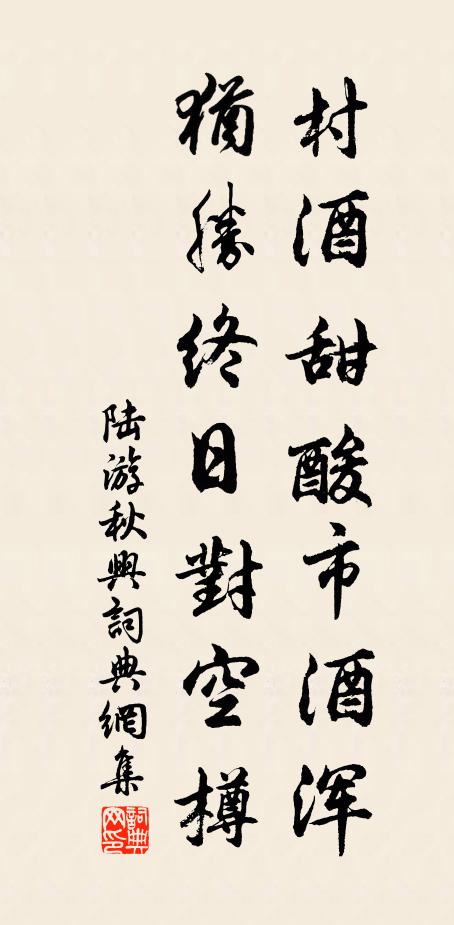 村酒甜酸市酒浑
猶勝終日對空樽
陆游秋興詞典網集
詞典网印